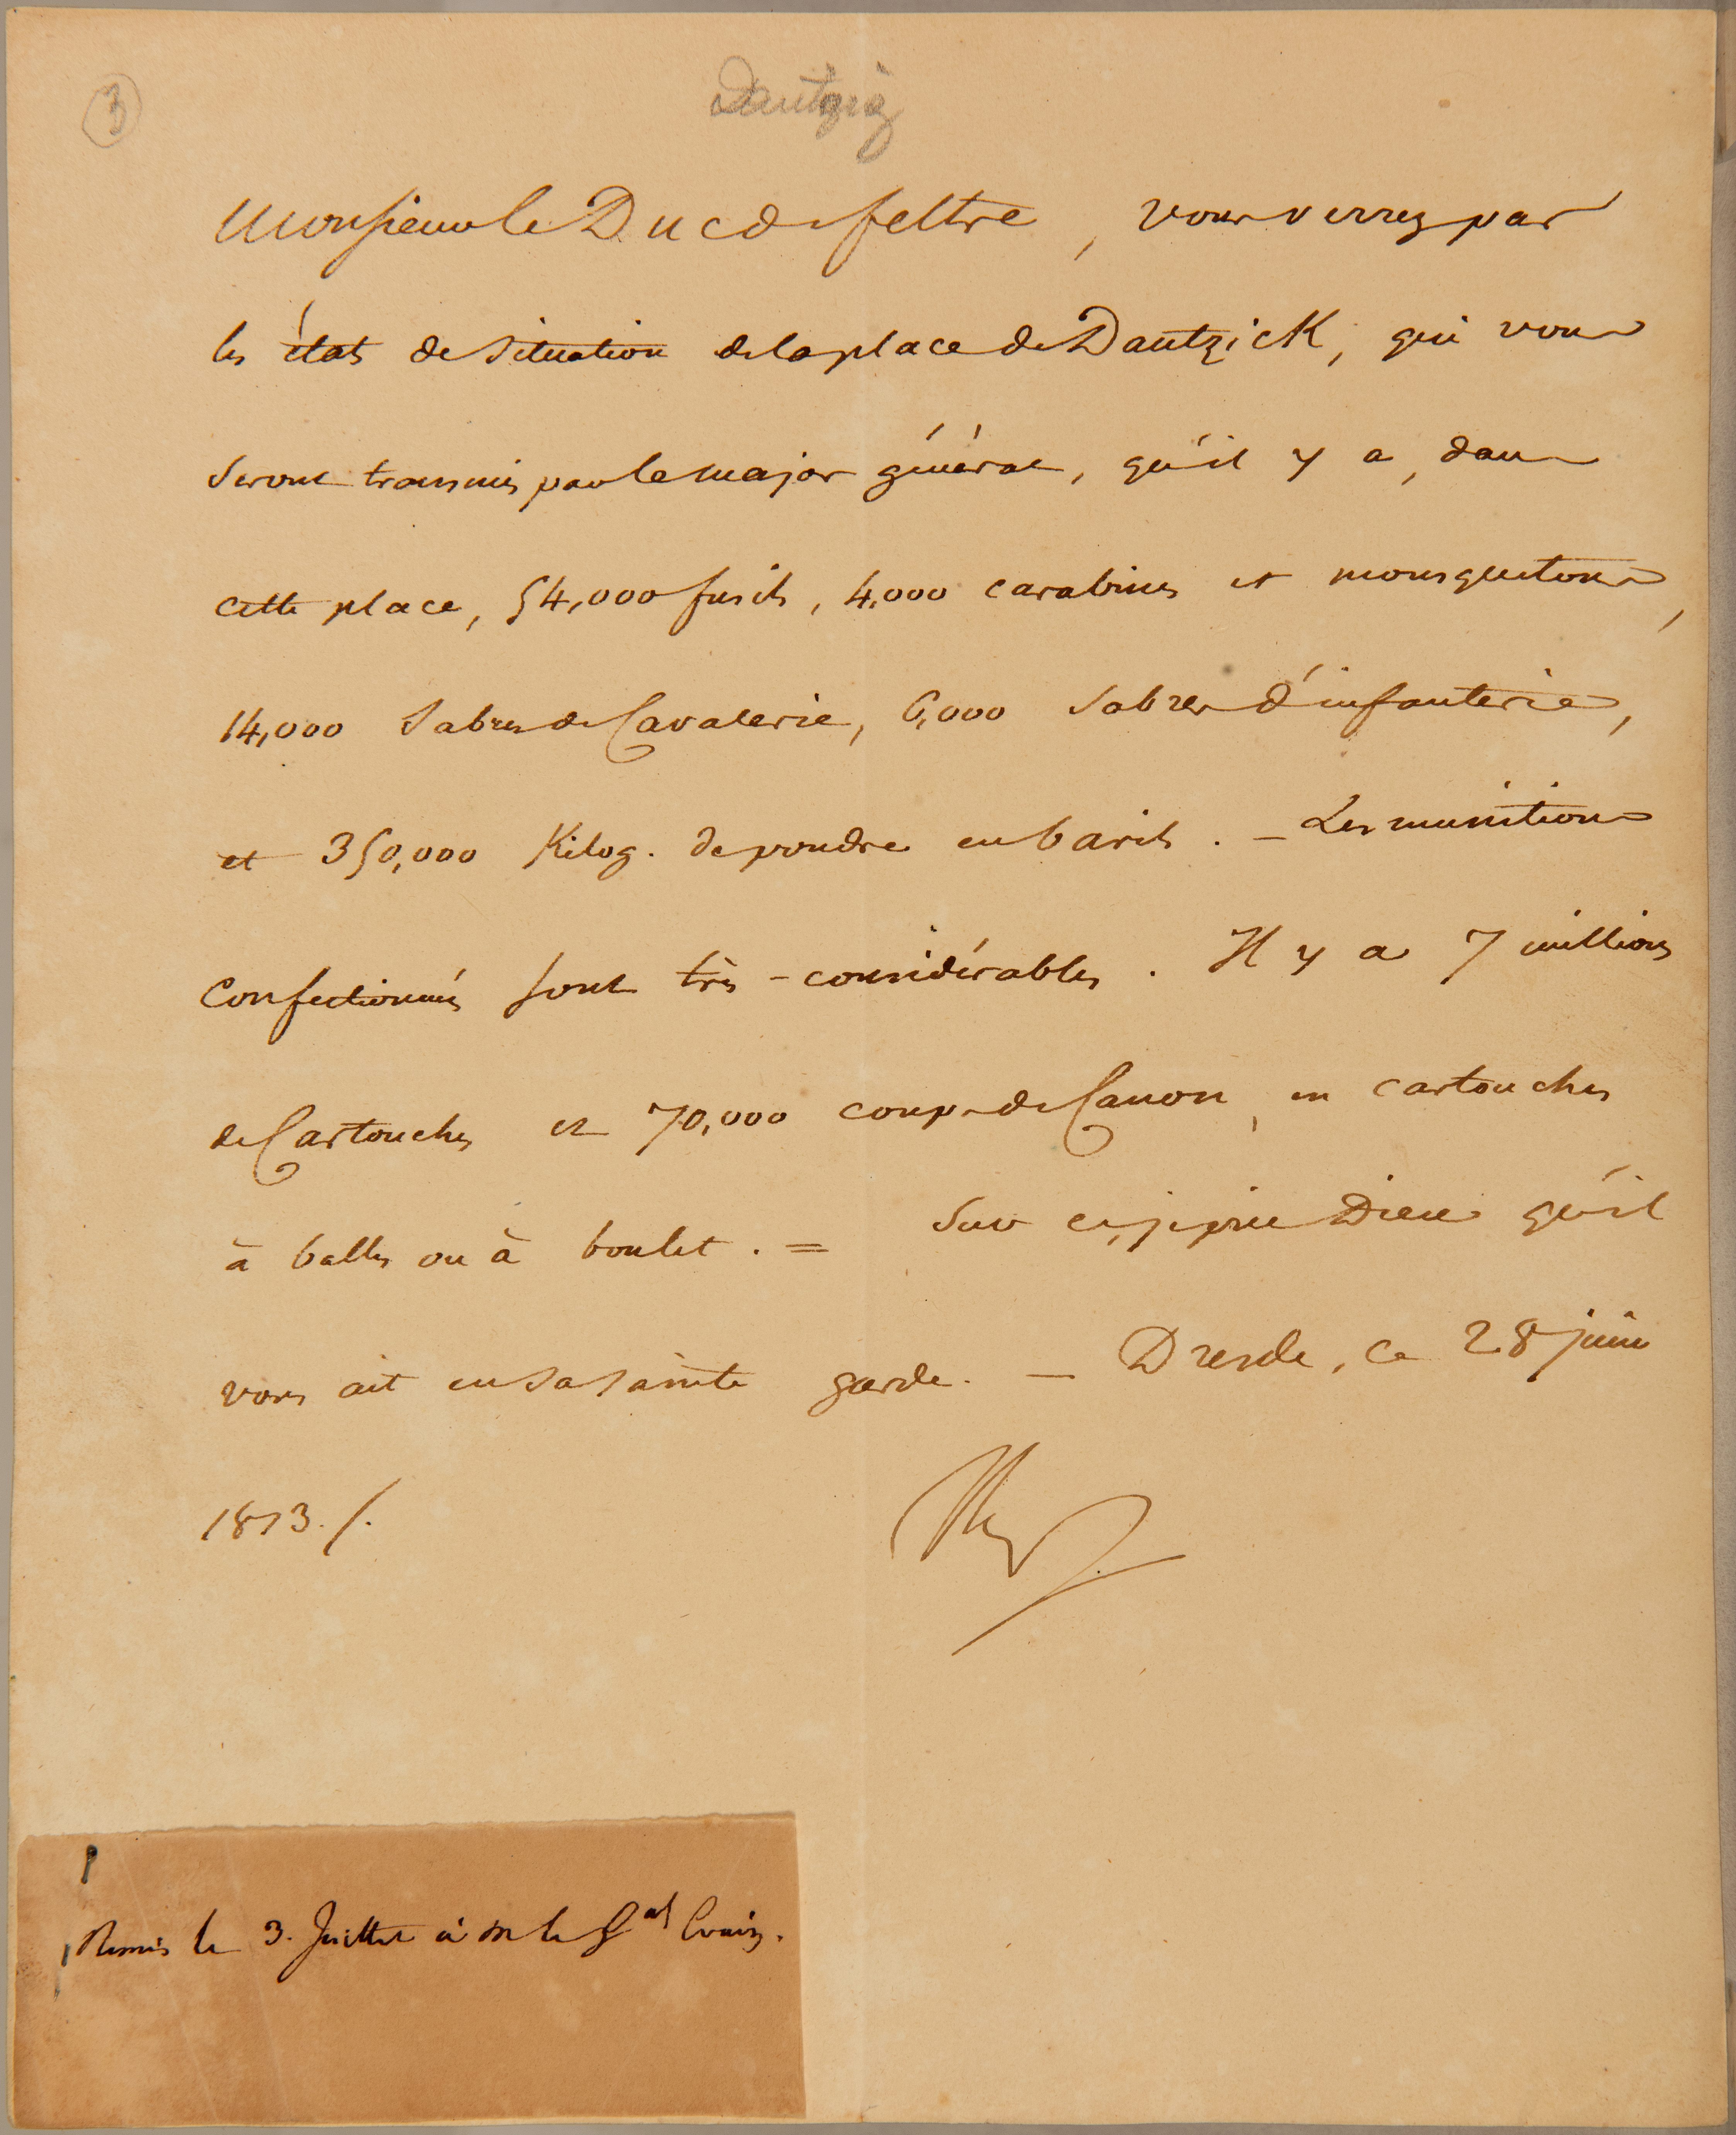 3
Dantzig
Monsieur le Duc de feltre, vous verrez par
les états de situation de la place de Dantzick, qui vous
seront transmis par le major général, qu'il y a, dans
cette place, 54,000 fusils, 4,000 carabines et mousquetons,
14,000 Sabres de Cavalerie, 6,000 Sabres d'infanterie,
et 350,000 Kilog. de poudre en barils. — Les munitions
Confectionnés sont très-considérables. Il y a 7 millions
de Cartouches et 70,000 coups de Canon, en cartouches
à balles ou à boulet. = Sur ce, je prie Dieu qu'il
vous ait en sa sainte garde. — Dresde, ce 28 juin
1813./.
Remis le 3. Juillet à M le Gal Evain.